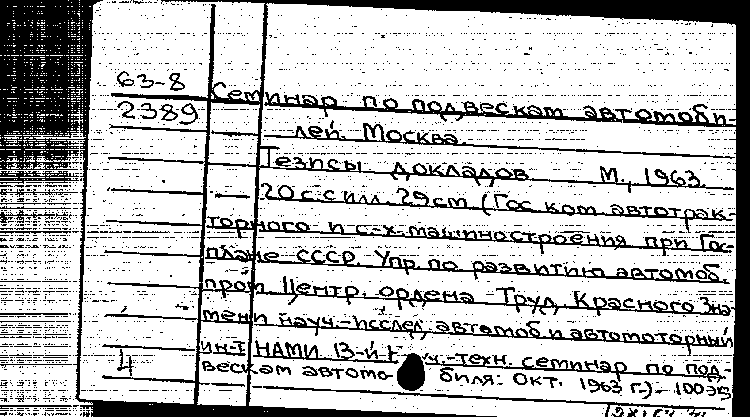 63-8
2389
Семинар по подвескам автомоби-
лей. Москва.
Тезисы докладов М., 1963.
20 с. с илл. 29 см (Гос. ком. автотрак-
торного и с-х. машиностроения при Гос-
плане СССР. Упр. по развитию автомоб.
пром. Центр. ордена Труд. Красного Зна-
мени науч.-исслед. автомоб. и автомоторный
ин-т НАМИ 13-й техн. семинар по под-
4
вескам автомо биля: Окт. 1963 г.).- 100 экз